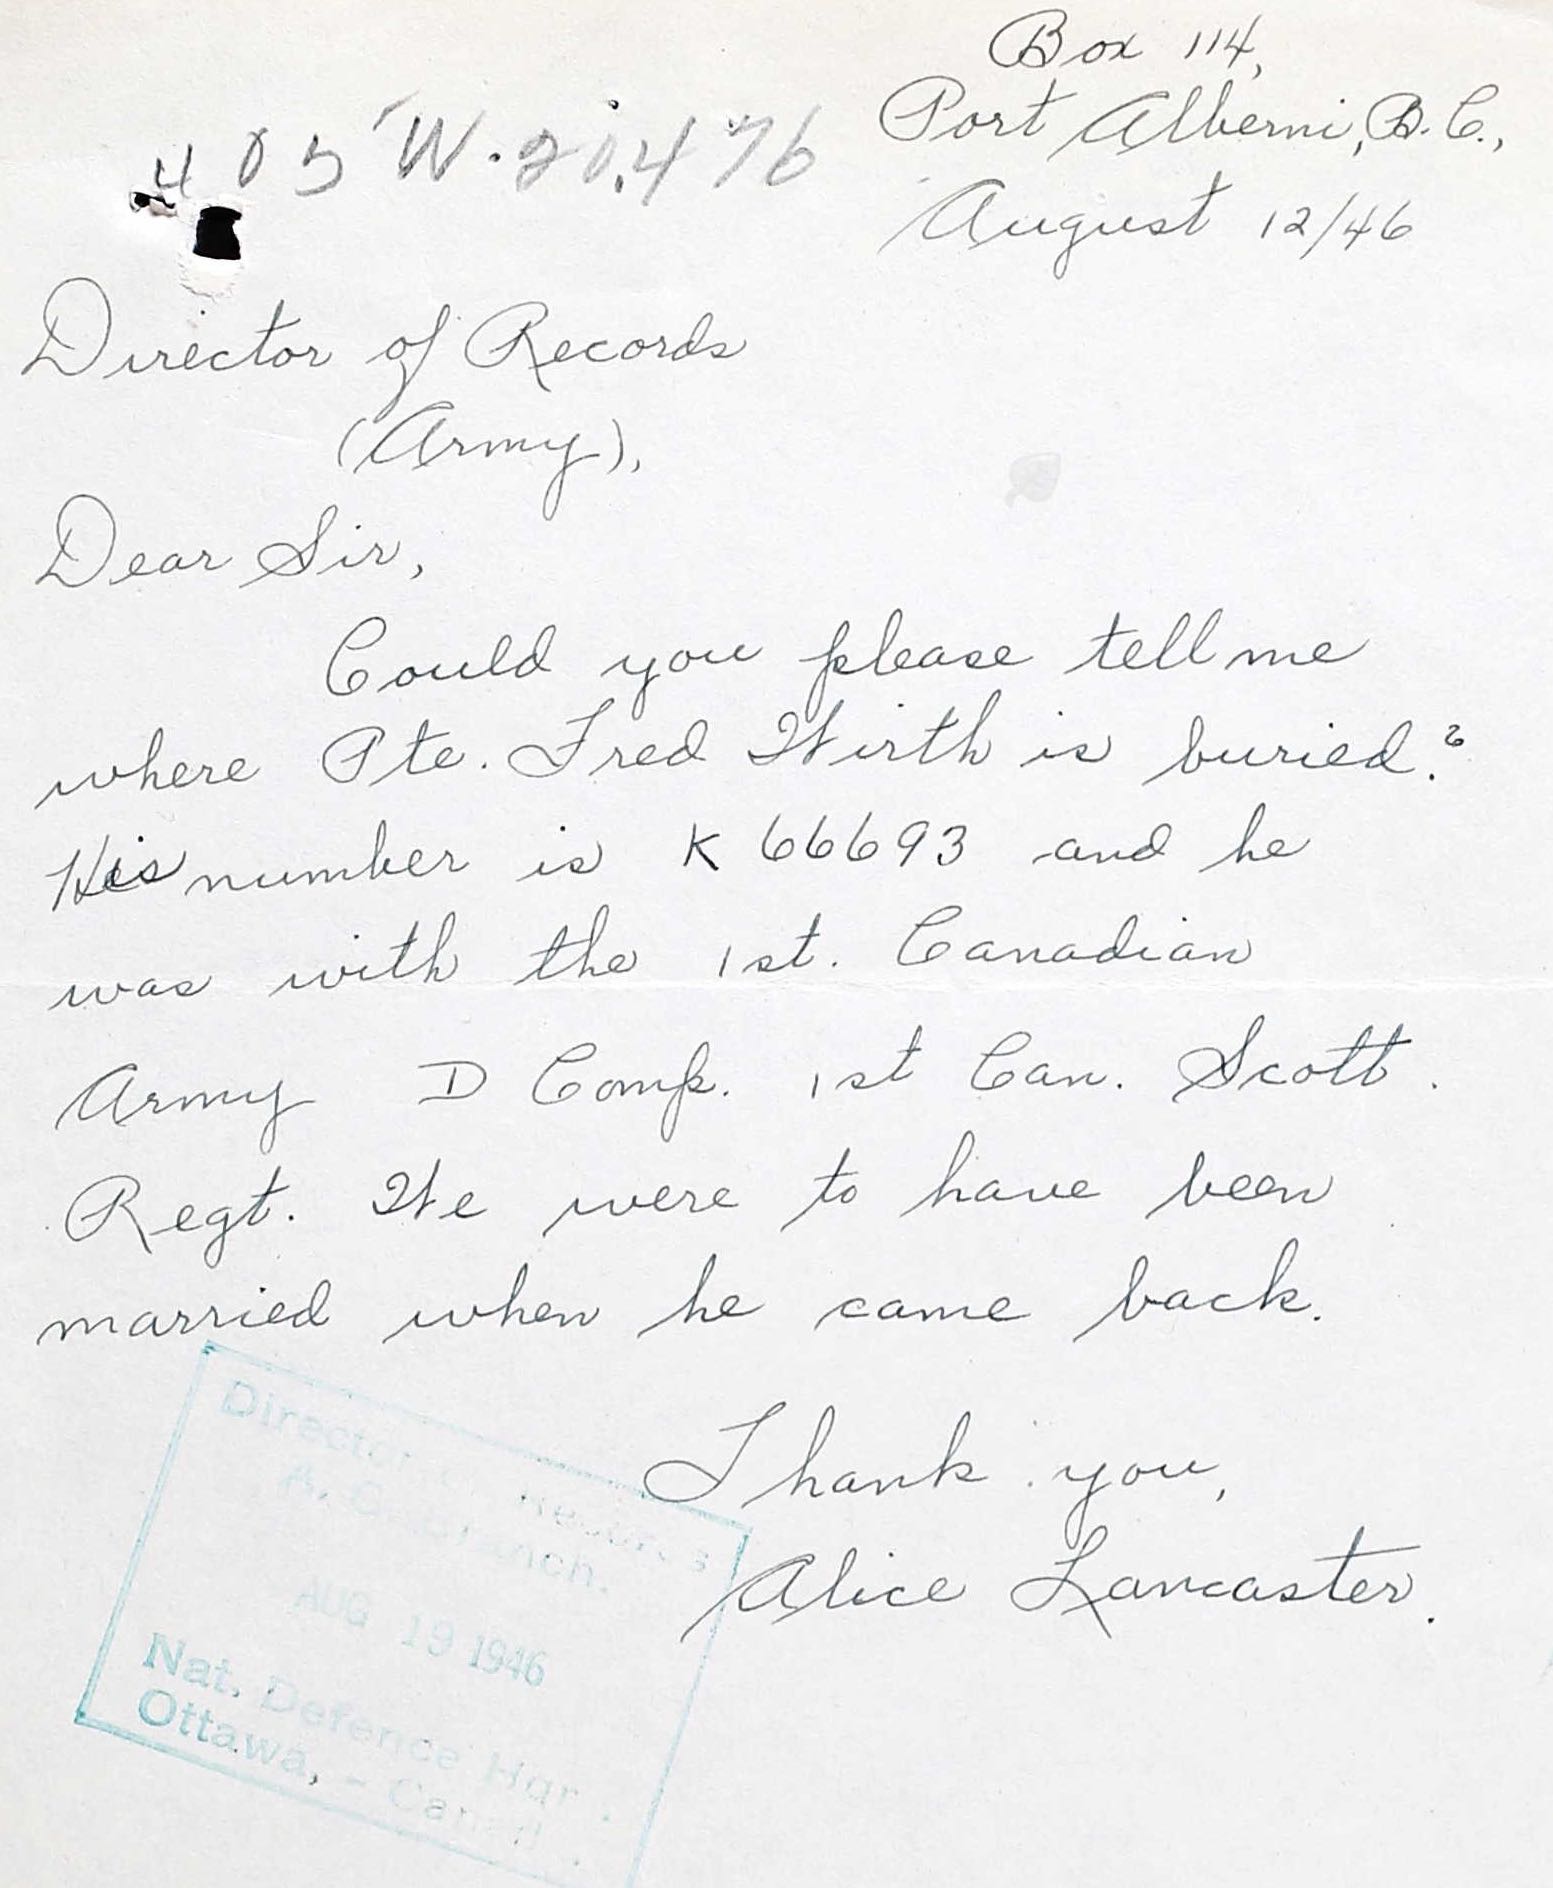 Box 114,
Port Alberni, B.C.,
405 W. 20,476
August 12/46
Director of Records
(Army),
Dear Sir,
Could you please tell me
where Pte. Fred Wirth is buried?
His number is K 66693 and he
was with the 1st. Canadian
Army D Comp. 1st Can. Scott.
Regt. We were to have been
married when he came back.
Thank you,
Alice Lancaster.
Director Records
Branch.
AUG 19 1946
Nat. Defence Hqr.
Ottawa, - Canada